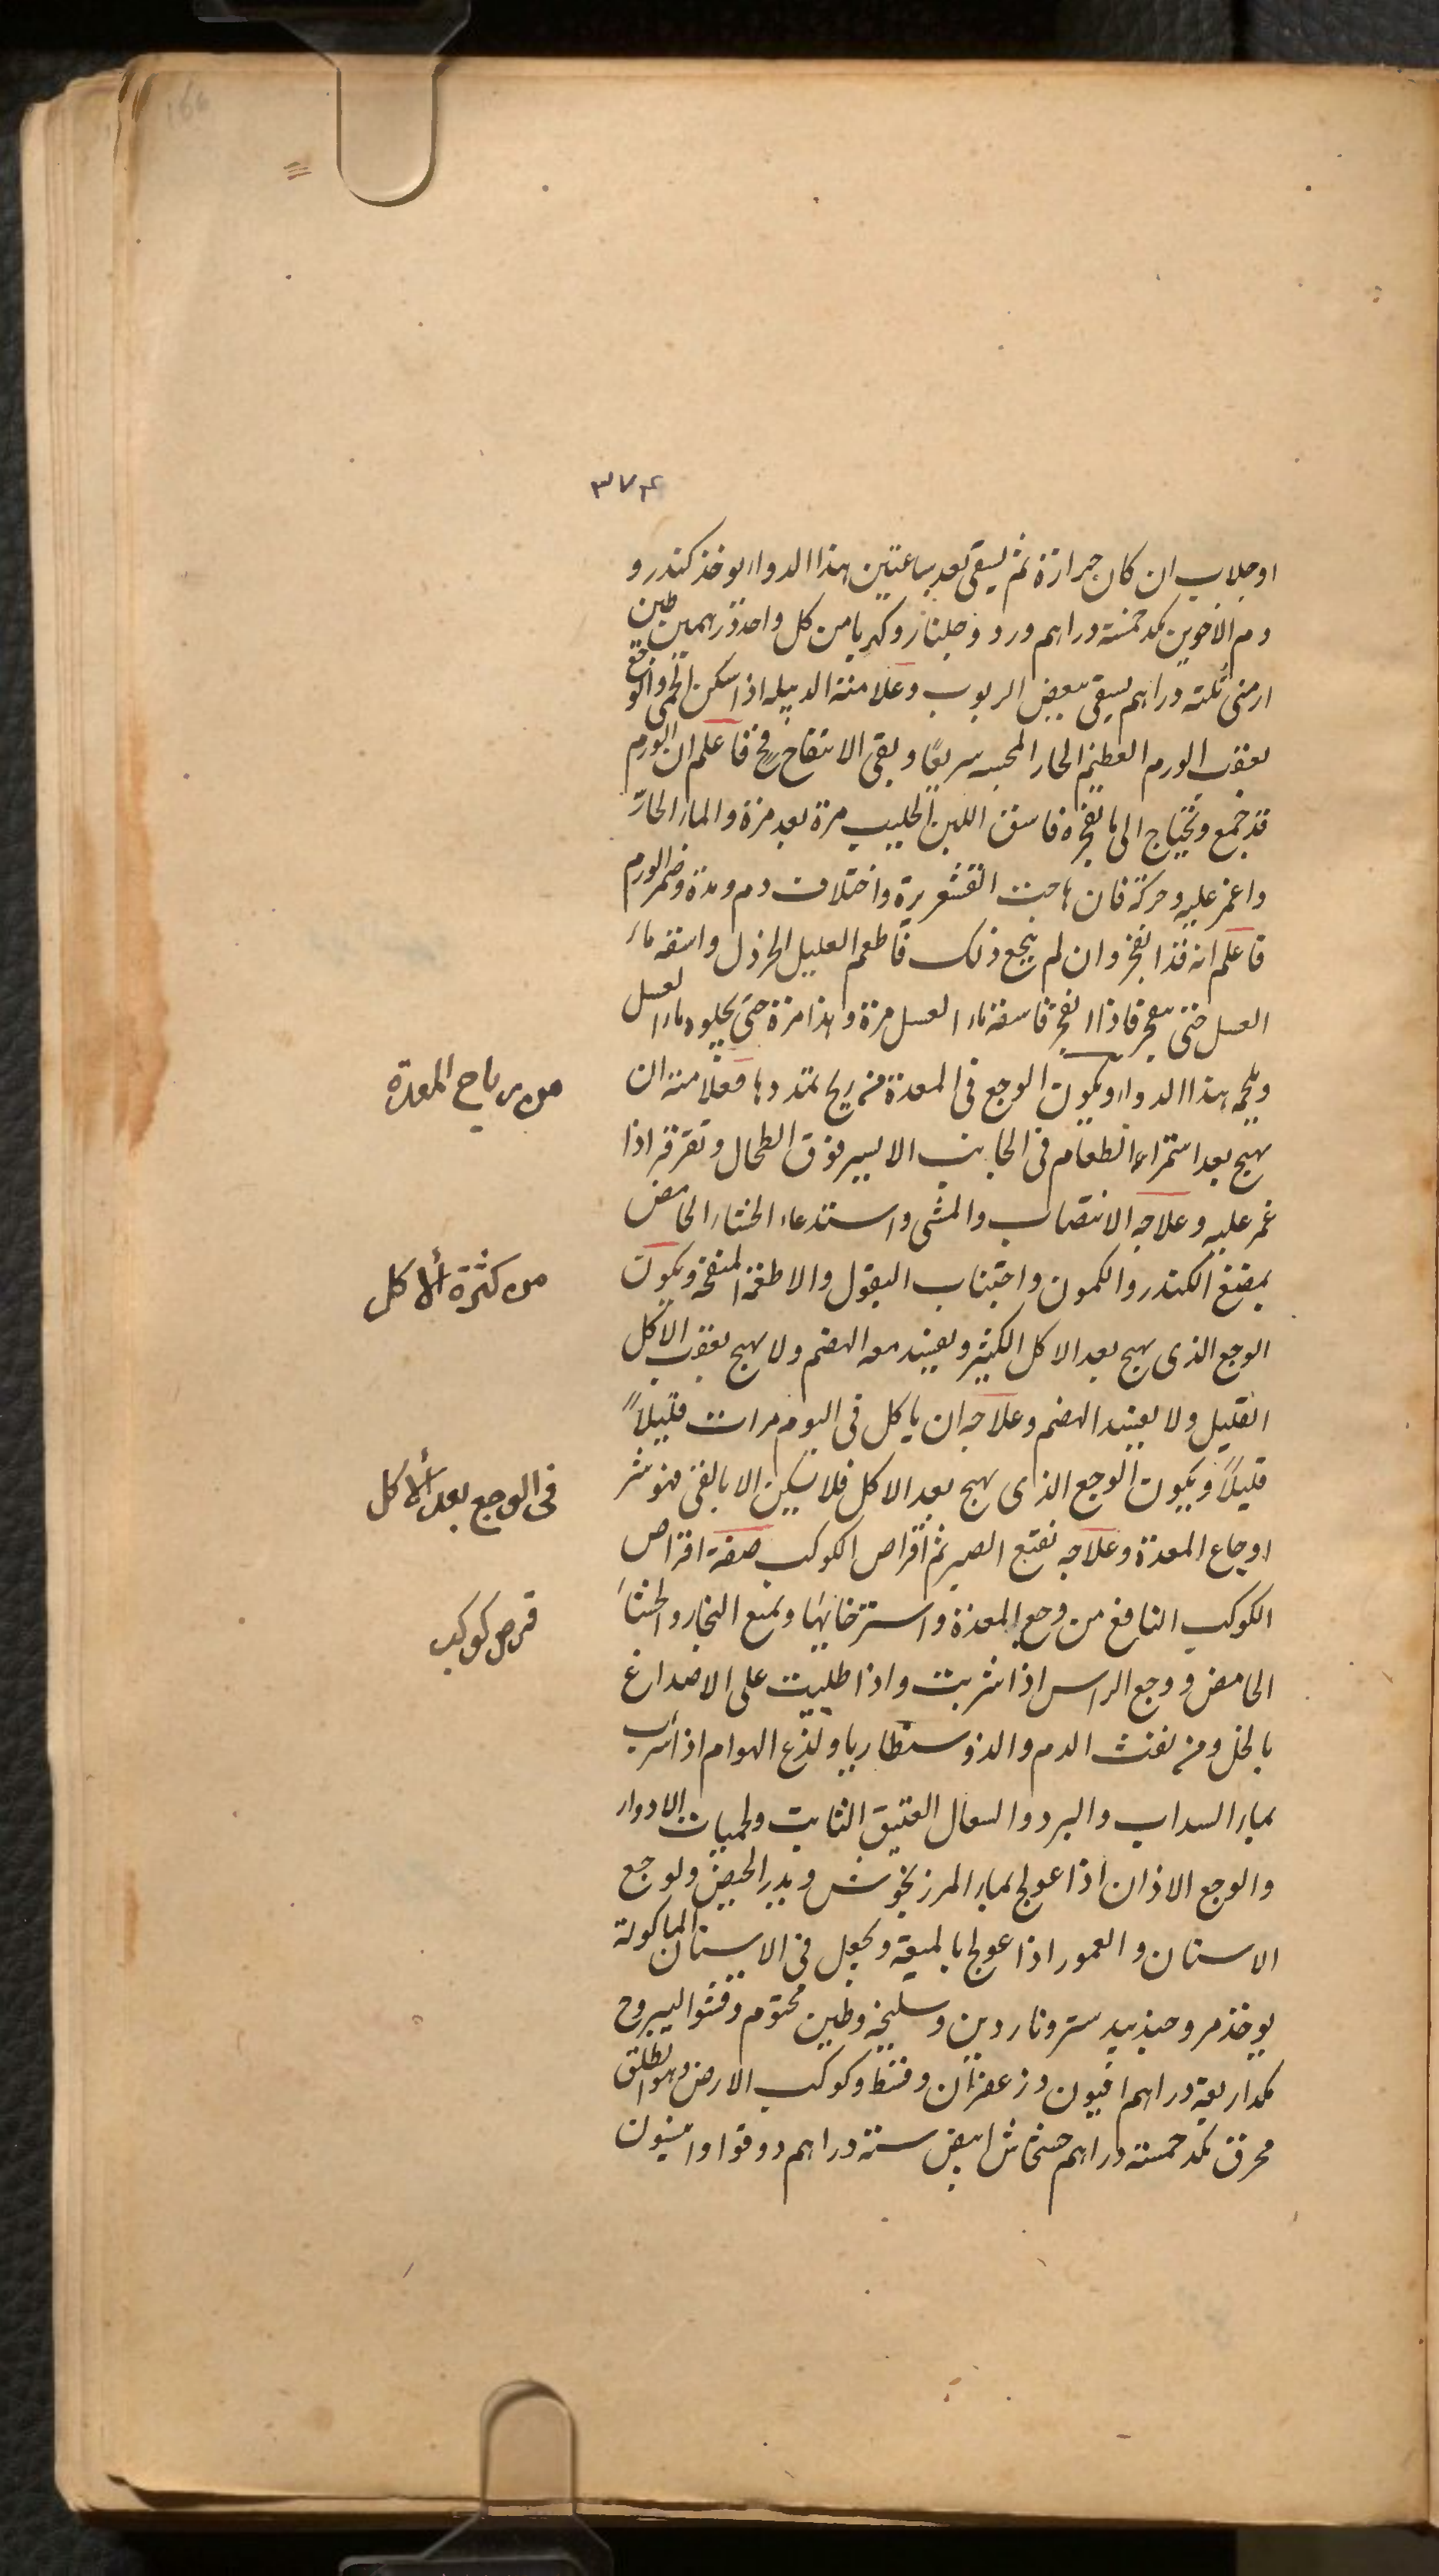 ٣٧٤
او جلاب ان كان حرارة ثم يسقى بعد ساعتين هذا الدواء يوخذ كندر و
دم الاخوين بمد خمسة دراهم ورد وجلنار وكهربا من كل واحد درهمين طين
ارمنى ثلثة دراهم يسقى ببعض الربوب وعلامة الدبيله اذا سكن الحمى والوجع
بعقب الورم العظيم الحار المجسه سريعًا وبقى الانتفاخ فاعلم ان الورم
قد جمع ويحتاج الى ما يفجره فاسق اللبن الحليب مرة بعد مرة والماء الحارّ
واغمز عليه وحركه فان هاجت القشعريرة واختلاف دم ومدة وضمر الورم
فاعلم انه قد انفجر وان لم ينجع ذلك فاطعم العليل الخردل واسقه ماء
العسل حتى ينفجر فاذا انفجر فاسقه ماء العسل مرة وهذا مرة حتى يجلوه ماء العسل
ويلحمه هذا الدواء ويكون الوجع فى المعدة من ريح تمددها فعلامته ان
يهيج بعد استمراء الطعام فى الجانب الايسر فوق الطحال وتقرقر اذا
غمز عليه وعلاجه الانتصاب والمشى واستدعاء الجشاء الحامض
بمضغ الكندر والكمون واجتناب البقول والاطعمة المنفخة ويكون
الوجع الذى يهيج بعد الاكل الكثير ويفسد معه الهضم ولا يهيج بعقب الاكل
القليل ولا يفسد الهضم وعلاجه ان ياكل فى اليوم مرات قليلاً
قليلاً ويكون الوجع الذى يهيج بعد الاكل فلا يسكن الا بالقى فهو شر
اوجاع المعدة وعلاجه نقيع الصبر ثم اقراص الكوكب صفة اقراص
الكوكب النافع من وجع المعدة واسترخائها وتمنع البخار والجشاء
الحامض ووجع الراس اذا شربت واذا طليت على الاصداغ
بالخل ومن نفث الدم والدوسنطاريا ولذع الهوام اذا شرب
بماء السداب والبرد والسعال العتيق الثابت ولحميات الادوار
والوجع الاذان اذا عولج بماء المرزنجوش ويدر الحيض ولوجع
الاسنان والعمور اذا عولج بالميعة ويجعل فى الاسنان الماكولة
يوخذ مر وجندبيدستر وناردين وسليخة وطين مختوم وقشو اليبروح
بمد اربعة دراهم افيون وزعفران وقسط وكوكب الارض وهو الطلق
محرق بمد خمسة دراهم خشخاش ابيض ستة دراهم دوقوا وانيسون
من رياح المعدة
من كثرة الأكل
فى الوجع بعد الأكل
قرص كوكب